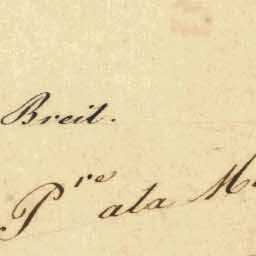 Breit.
Pre ala M.